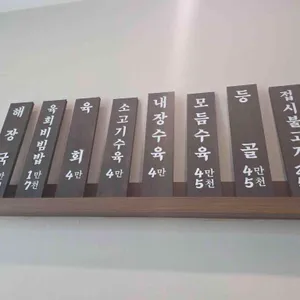 해장국
육회비빔밥 1만7천
육회 4만
소고기수육 4만
내장수육 4만
모듬수육 4만5천
등골 4만5천
접시불고기